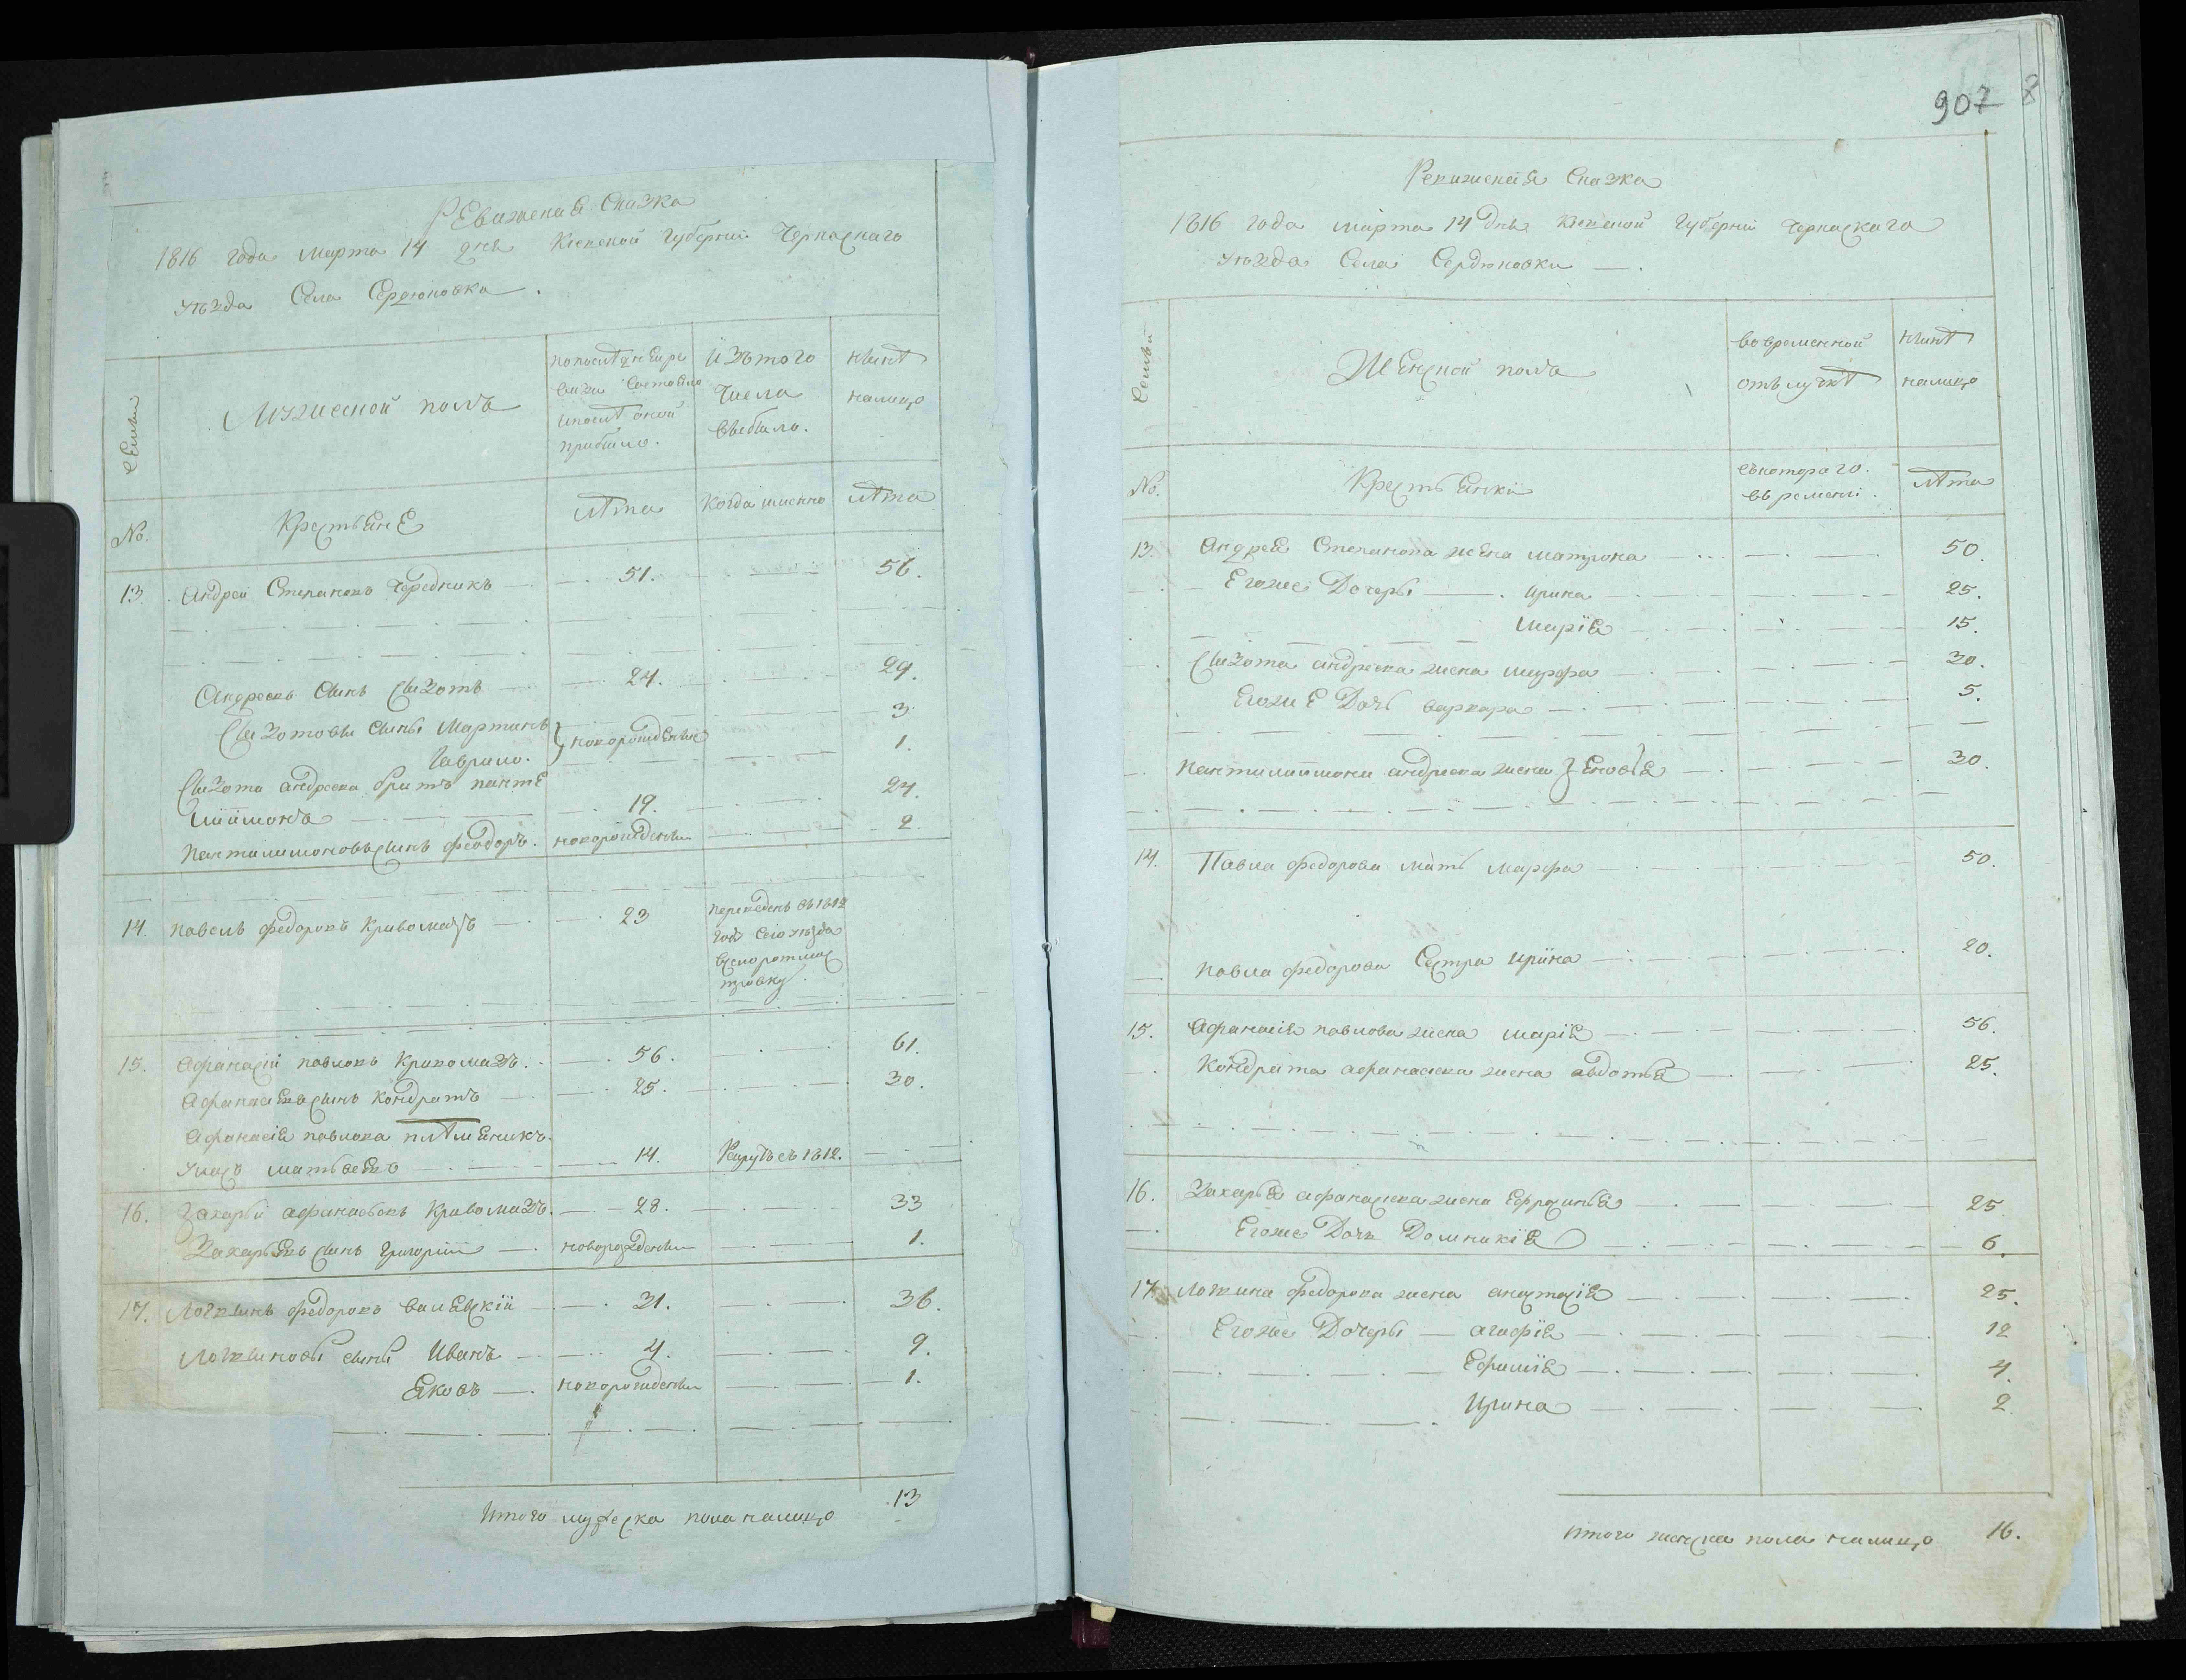 РЕвиженая сказка
1816 года марта 14 дня Киевской губернии Черкаскаго
уѣзда Села Сердюковки.
Семьи
Мужеской полъ
по последнеи ре
визи состояло
и после оной
прибыло.
изъ того
числа
выбыло.
ныне
налицо
No.
Крестьяне
Лета
Когда именно
Лета
13. Андрей Степановъ Чередникъ 51. 56.
Андреевъ сынъ Изотъ 24. 29.
Изотовы сыны Мартинъ } новорожденые 3.
Гаврило. 1.
Изота андреева братъ панте
лиимонъ 19. 24.
Пантилимоновъ сынъ феодоръ. новорожденъ 2.
14. Павелъ федоровъ Кривомазъ 23
переведенъ въ 1812
годе сего уезда
15. Афанасий павловъ Кривомазъ. 56. 61.
Афанасиевъ сынъ кондратъ 25. 30.
Афанасия павлова племяникъ
матвеевъ 14. Рекрутъ въ 1812.
16. Захарий афанасьевъ Кривомазъ. 28. 33
Захариевъ сынъ григорий новорожденъ 1.
17. Логвинъ федоровъ 31. 36.
Логвиновы сыны Иванъ 4. 9.
Яковъ новорожденъ 1.
Итого мужеска пола налицо 13
907
8
Ревижская Сказка
1816 года марта 14 дня Киевской губернии Черкаскаго
уѣзда Села Сердюковки.
Семьи
Женской полъ
во временной
отълучке
ныне
налицо
No.
Крестьянки
съкотораго.
времени.
Лета
13. Андрея Степанова жена матрона 50.
Егоже Дочери Ирина 25.
Мария 15.
Изота андреева жена марфа 30.
Егоже Дочь варвара 5.
Пантилиимона андреева жена Зеновья 30.
14. Павла федорова мать марфа 50.
Павла федорова Сестра ирина 20.
15. Афанасия павлова жена мария 56.
Кондрата афанасиева жена авдотья 25.
16. Захарья афанасиева жена Ефросинья 25.
Егоже Дочь Домникия 6.
17. Логвина федорова жена анастасия 25.
Егоже Дочери агафия 12
Ефимия 4.
Ирина 2.
Итого женска пола налицо 16.